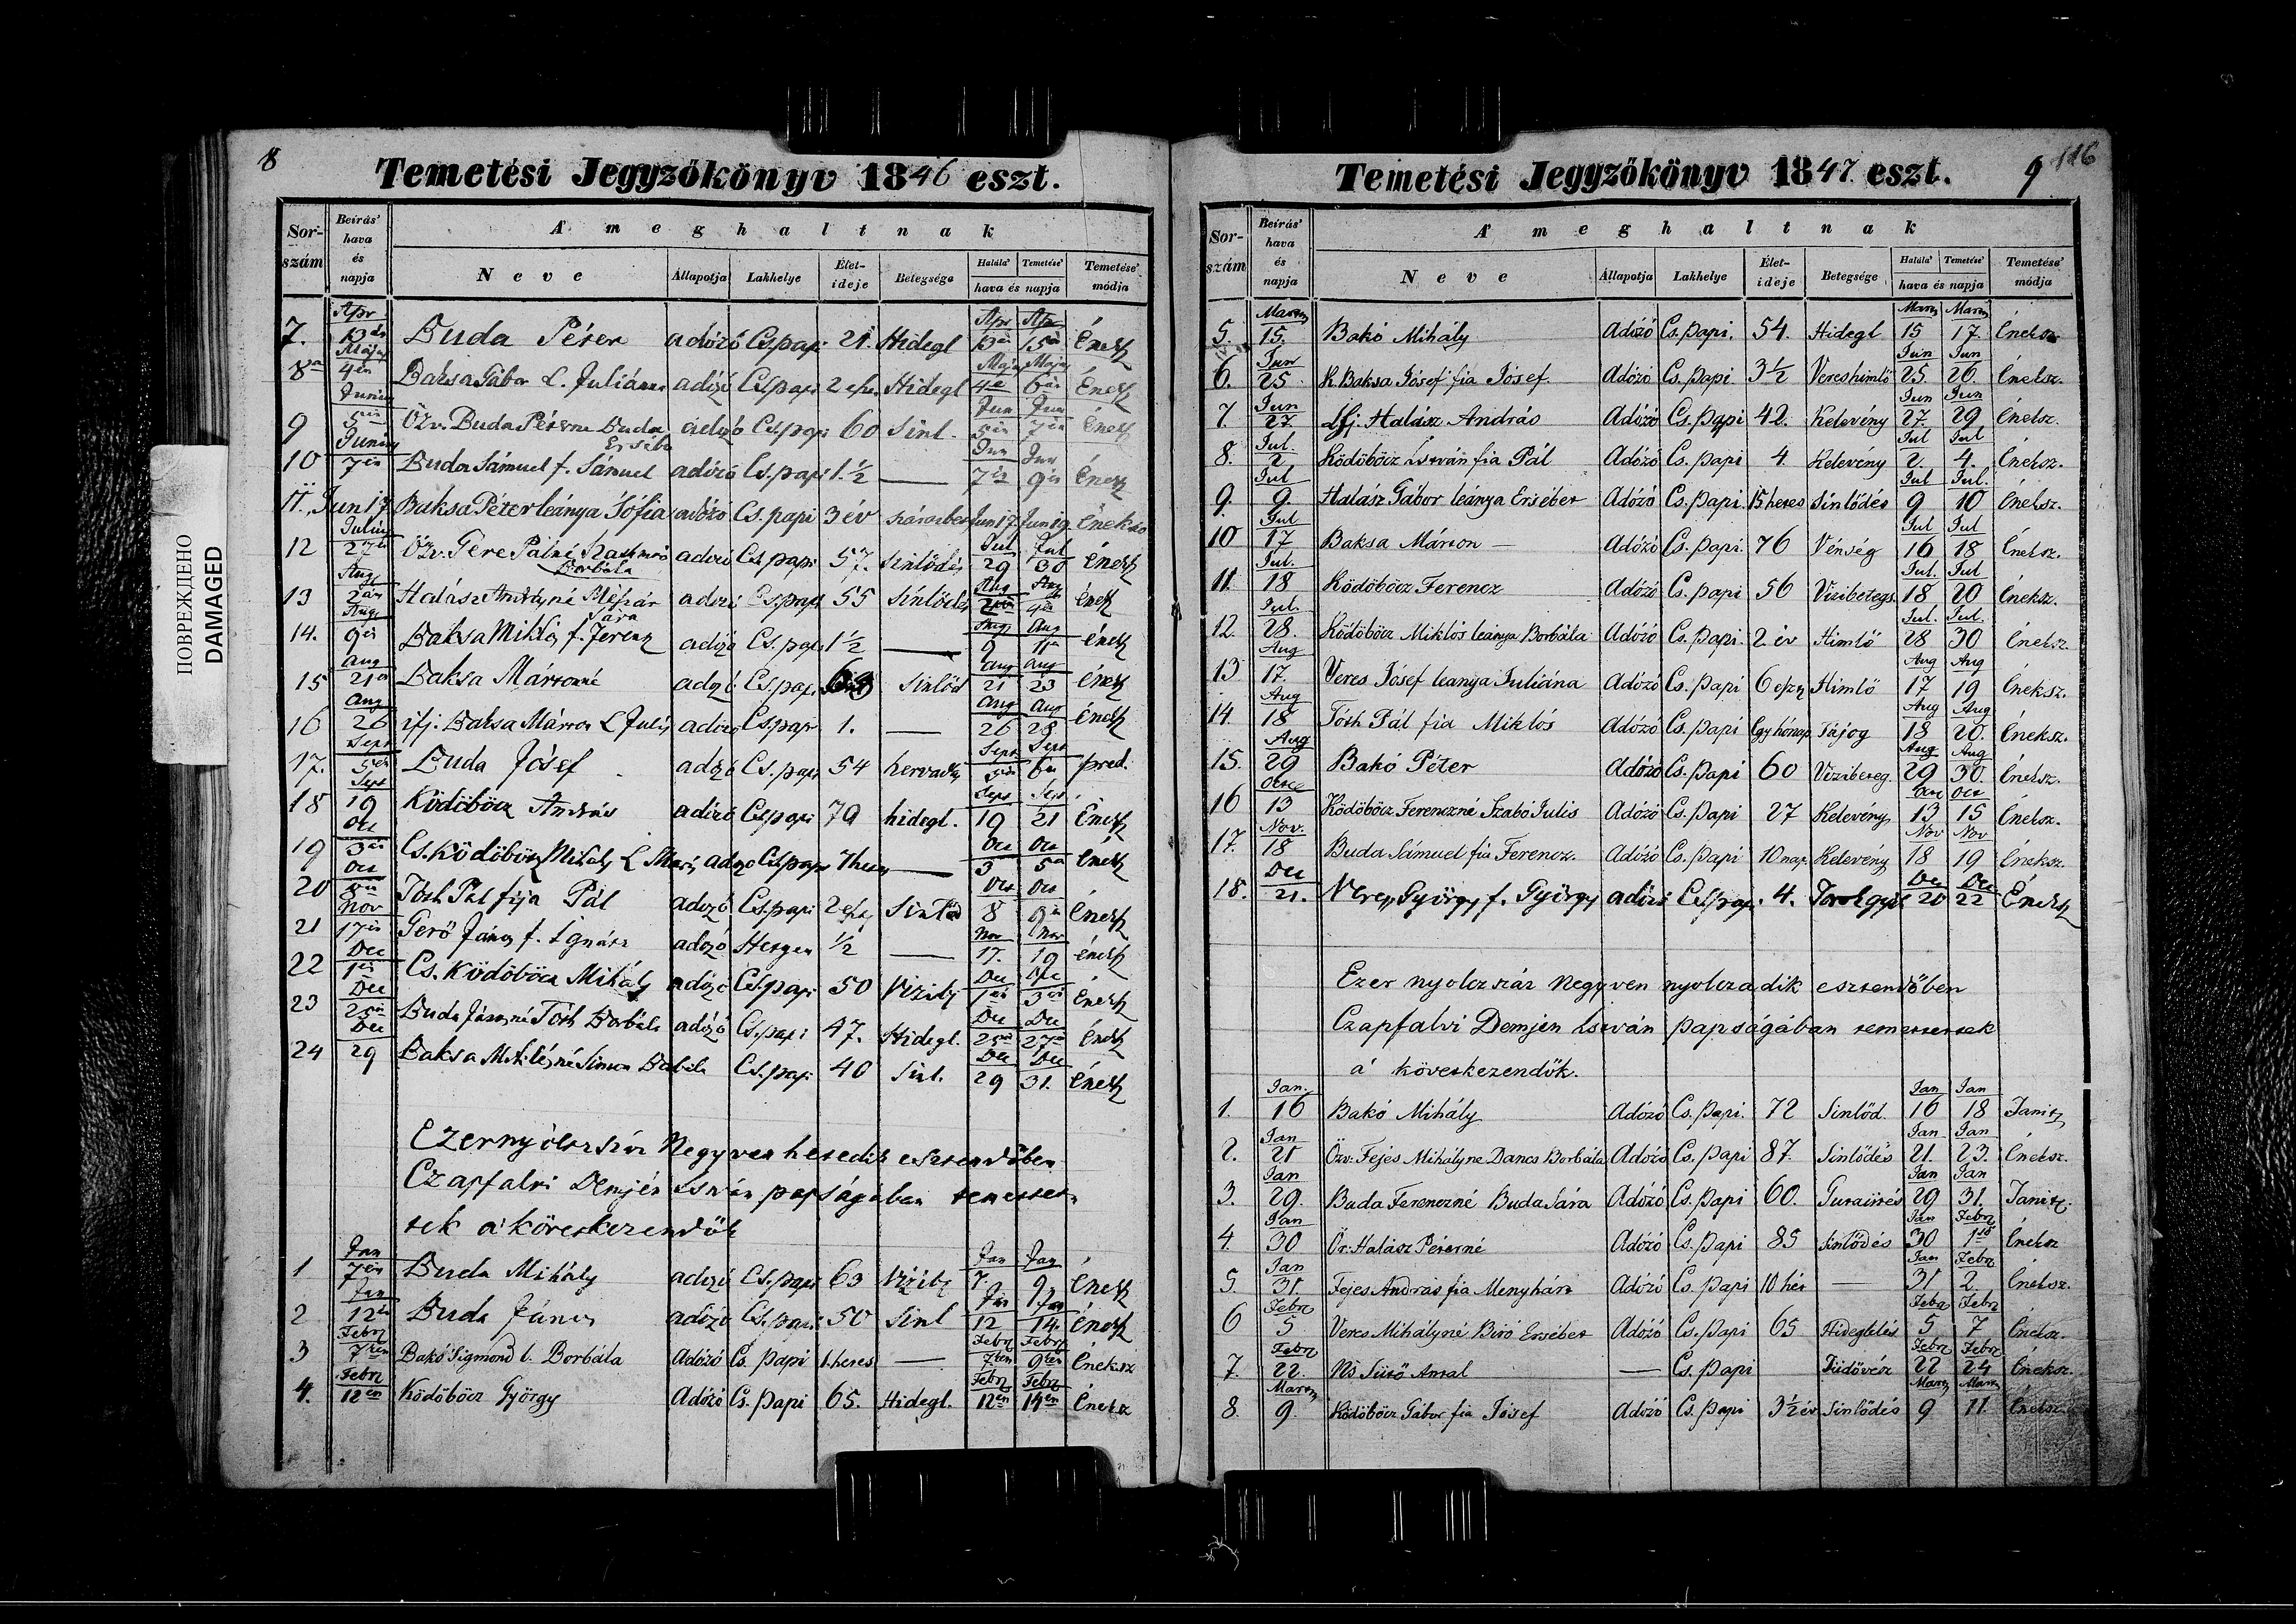 8
Temetési Jegyzőkönyv 1846 eszt.
Sor-szám Beírás' hava és napja A' meghaltnak
Neve Állapotja Lakhelye Élet-ideje Betegsége Halála' Temetése' hava és napja Temetése' módja
7. Apr 13 Buda Péter adózó Cspapi 21. Hidegl Apr 13 Apr 15 Éneksz
8 Május 4 Baksa Gábor L. Juliánna adózó Cs.papi 2 Hidegl Május 4 Május 6 Éneksz
9 Junius 5 Özv. Buda Péterné Buda Ersébe adózó Cs.papi 60 Sinl. Jun 5 Jun 7 Éneksz
10 Junius 7 Buda Sámuel f. Sámuel adózó Cs.papi 1½ — Jun 7 Jun 9 Éneksz
11. Jun 17 Baksa Péter leánya Sófia adózó Cs. papi 3 év szárazbet Jun 17. Jun 19. Éneksz
12 Julius 27 Özv. Gere Pálné Borbála adózó Cs.papi 57. Sinlődés Jul 29 Jul 30 Éneksz
13 Aug 2 Halász Andrásné Mészár Sára adózó Cs.papi 55 Sinlődés Aug 2 Aug 4 Éneksz
14. Aug 9 Baksa Miklós f. Ferenz adózó Cs.papi 1½ — Aug 9 Aug 11 éneksz
15 Aug 21 Baksa Mártonné adózó Cs.papi 68 Sinlőd Aug 21 Aug 23 éneksz
16 Aug 26 ifj. Baksa Márton L Julis adózó Cs.papi 1. — Aug 26 Aug 28 éneksz
17. Sept 5 Buda Jósef adózó Cs.papi 54 hervadt Sept 5 Sept 6 pred.
18 Sept 19 Ködöböcz András adózó Cspapi 79 hidegl. Sept 19 Sept 21 Éneksz
19 Oct 3 Cs. Ködöböcz Mihály L Mari adozo Cs.papi 7 — Oct 3 Oct 5 éneksz
20 Oct 8 Tóth Pál fija Pál adózó Cs.papi 2 Sinlőd Oct 8 Oct 9 Éneksz
21 Nov 17 Gerő János f. Ignátz adózó ½ — Nov 17. Nov 19 éneksz
22 Dec 1 Cs. Ködöböcz Mihály adózó Cs.papi 50 Vizibt Dec 1 Dec 3 Éneksz
23 Dec 25 Buda Jánosné Tóth Borbála adózó Cs.papi 47. Hidegl. Dec 25 Dec 27 Éneksz
24 Dec 29 Baksa Miklósné Simon Borbála Cs.papi 40 Sinl. Dec 29 Dec 31. Éneksz
Ezernyólczszáz Negyven hetedik esztendőben
Czapfalvi Demjén István papságában temettet-
tek a' következendők
1 Jan 7 Buda Mihály adózó Cs.papi 63 Vizibt Jan 7. Jan 9 Éneksz
2 Jan 12 Buda János adózó Cs.papi 50 Sinl Jan 12 Jan 14. Éneksz
3 Febr 7 Bakó Sigmond l. Borbála Adózó Cs. papi 6.hetes — Febr 7 Febr 9 Éneksz
4. Febr 12 Ködöböcz György Adózó Cs. papi 65. Hidegl. Febr 12 Febr 14 Éneksz
9 116
Temetési Jegyzőkönyv 1847. eszt.
Sor-szám Beírás' hava és napja A' meghaltnak
Neve Állapotja Lakhelye Élet-ideje Betegsége Halála' Temetése' hava és napja Temetése' módja
5. Martz 15. Bakó Mihály Adózó Cs. papi. 54. Hidegl Martz 15 Martz 17. Éneksz
6. Jun 25 K. Baksa Jósef fia Jósef. Adózó Cs. papi 3½ Vereshimlő Jun 25. Jun 26. Éneksz.
7. Jun 27. Ifj. Halász András Adózó Cs. papi 42. Kelevény Jun 27. Jun 29 Éneksz.
8. Jul. 2 Ködöböcz István fia Pál Adózó Cs. papi 4. Kelevény Jul 2. Jul 4. Éneksz.
9. Jul 9 Halász Gábor leánya Ersébet Adózó Cs. papi. 15 hetes Sinlődés Jul 9 Jul. 10 Éneksz.
10 Jul 17 Baksa Márton — Adózó Cs. papi. 76 Vénség Jul 16 Jul 18 Éneksz.
11. Jul. 18 Ködöböcz Ferencz Adózó Cs. papi 56 Vizibetegs. Jul. 18 Jul 20 Éneksz.
12. Jul. 28. Ködöböcz Miklós leánya Borbála Adózó Cs. papi. 2. év Himlő Jul. 28 Jul. 30 Éneksz.
13 Aug 17. Veres Jósef leanya Juliána Adózó Cs. papi 6 Himlő Aug 17 Aug 19 Éneksz.
14. Aug 18 Tóth Pál fia Miklós Adózó Cs. papi Egy hónap. Tájog Aug 18 Aug 20. Éneksz.
15. Aug 29 Bakó Péter Adózó Cs. papi 60 Vizibeteg. Aug 29 Aug 30. Éneksz.
16 Octo 13 Ködöböcz Ferenczné Szabó Julis Adózó Cs. papi 27 Kelevény Oct 13 Oct 15 Éneksz.
17. Nov. 18 Buda Sámuel fia Ferencz. Adózó Cs. papi 10 nap. Kelevény Nov 18 Nov 19 Éneksz.
18. Dec 21. Veres György f. György adózó Cs.papi. 4. Torokgyík Dec 20 Dec 22 Éneksz
Ezer nyolcz száz negyven nyolczadik esztendőben
Czapfalvi Demjén István papságában temettettek
á következendők.
1. Jan. 16 Bakó Mihály Adózó Cs. papi. 72 Sinlőd. Jan 16 Jan 18 Tanits
2. Jan 21 Özv. Fejes Mihályne Dancs Borbála Adózó Cs. papi 87. Sinlődés Jan 21. Jan 23. Éneksz.
3. Jan 29. Buda Ferenczné Buda Sára Adózó Cs. papi 60. Gutaütés Jan 29 Jan 31. Tanits.
4. Jan 30 Öz. Halász Péterné Adózó Cs. papi 85 Sinlődés Jan 30 Febr 1 Éneksz
5. Jan 31. Fejes András fia Menyhárt Adózó Cs. papi 10 hét — Jan 31 Febr 2. Éneksz.
6 Febr 5 Veres Mihályné Biró Ersébet Adózó Cs. papi 65 Hideglelés Febr 5 Febr 7 Éneksz.
7. Febr 22. Ns Sütő Antal — Cs. papi Tüdővész Febr 22 Febr 24 Éneksz.
8. Martz 9. Ködöböcz Gábor fia Jósef Adózó Cs. papi 3½ év Sinlődés Martz 9 Martz 11. Éneksz
ПОВРЕЖДЕНО
DAMAGED